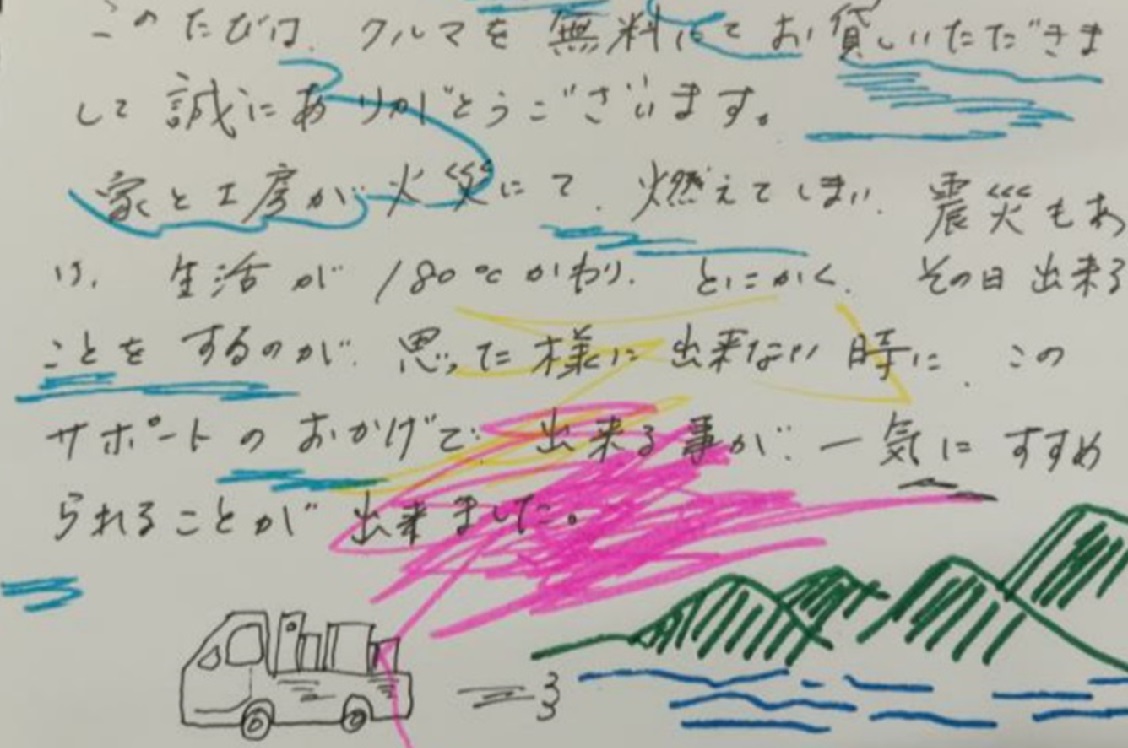 このたびは、クルマを無料にてお貸しいただきま
して誠にありがとうございます。
家と工房が火災にて、燃えてしまい、震災もあ
り、生活が180℃かわり、とにかく、その日出来る
ことをするのが、思った様に出来ない時に、この
サポートのおかげで、出来る事が、一気にすすめ
られることが出来ました。